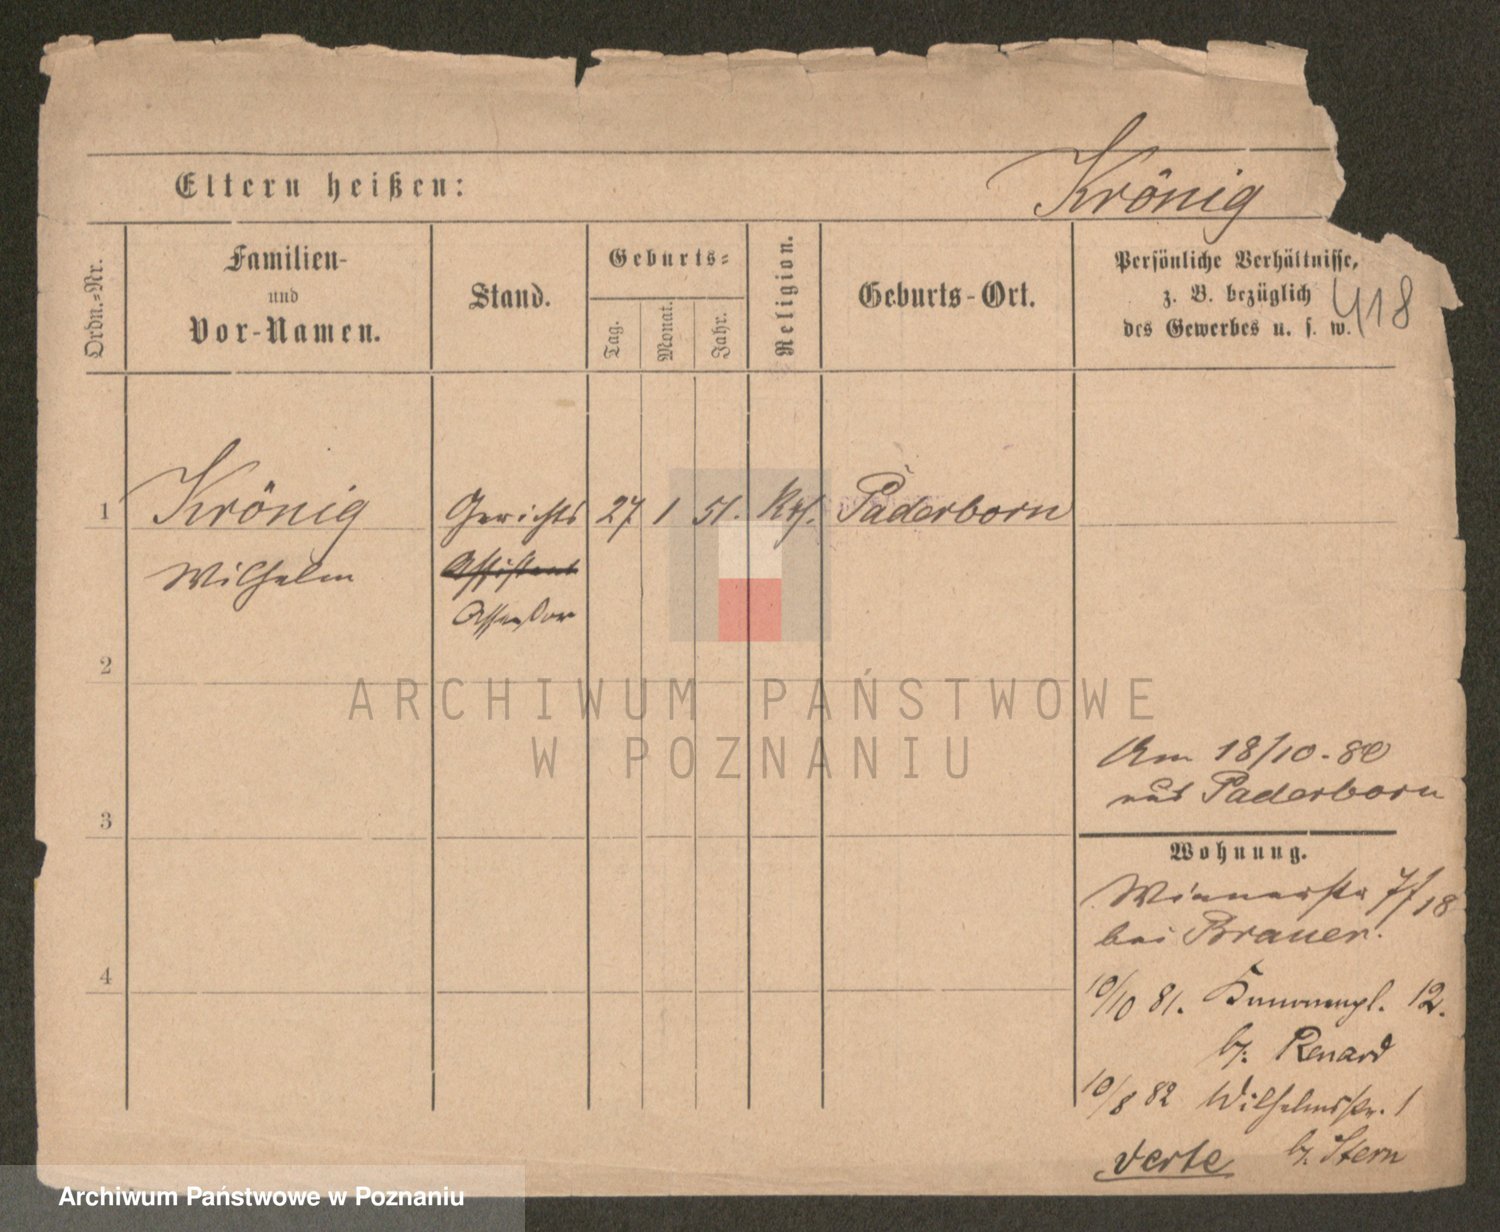 Eltern heißen:
Krönig
Ordn.-Nr.
Familien-
und
Vor-Namen.
Stand.
Geburts-
Tag.
Monat.
Jahr.
Religion.
Geburts-Ort.
Persönliche Verhältnisse,
z. B. bezüglich
des Gewerbes u. s. w.
418
1 Krönig Gerichts 27 1 51. Kth. Paderborn
Wilhelm Assistent
Assessor
2
3
4
Am 18/10-80
aus Paderborn
Wohnung.
7/18
bei Brauer.
10/10 81. 12.
b. Renard
10/8 82 Wilhelmsstr. 1
b. Stern
verte
ARCHIWUM PAŃSTWOWE
W POZNANIU
Archiwum Państwowe w Poznaniu